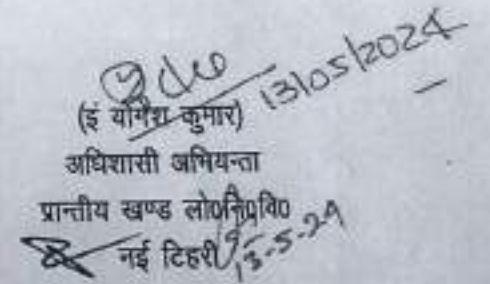 13/05/2024
(इं योगेश कुमार)
अधिशासी अभियन्ता
प्रान्तीय खण्ड लो०नि०वि०
नई टिहरी
13-5-24